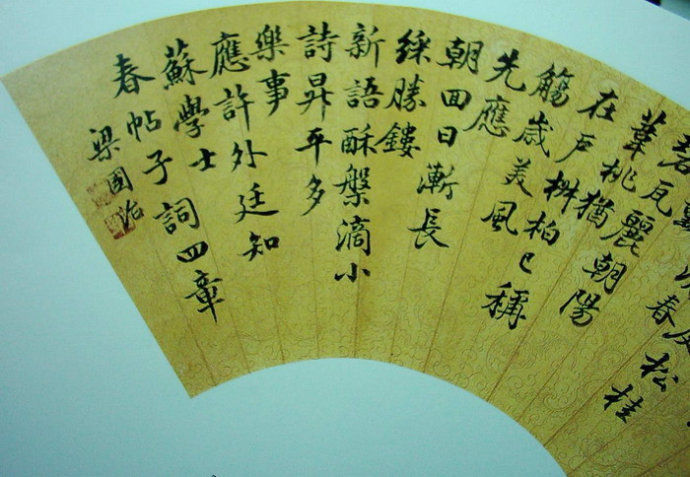 春
松桂
碧瓦麗朝陽
葦桃猶
在戶椒柏已稱
觴歲美風
先應
朝回日漸長
綵勝鏤
新語酥槃滴小
詩昇平多
樂事
應許外廷知
蘇學士
春帖子詞四章
梁國治